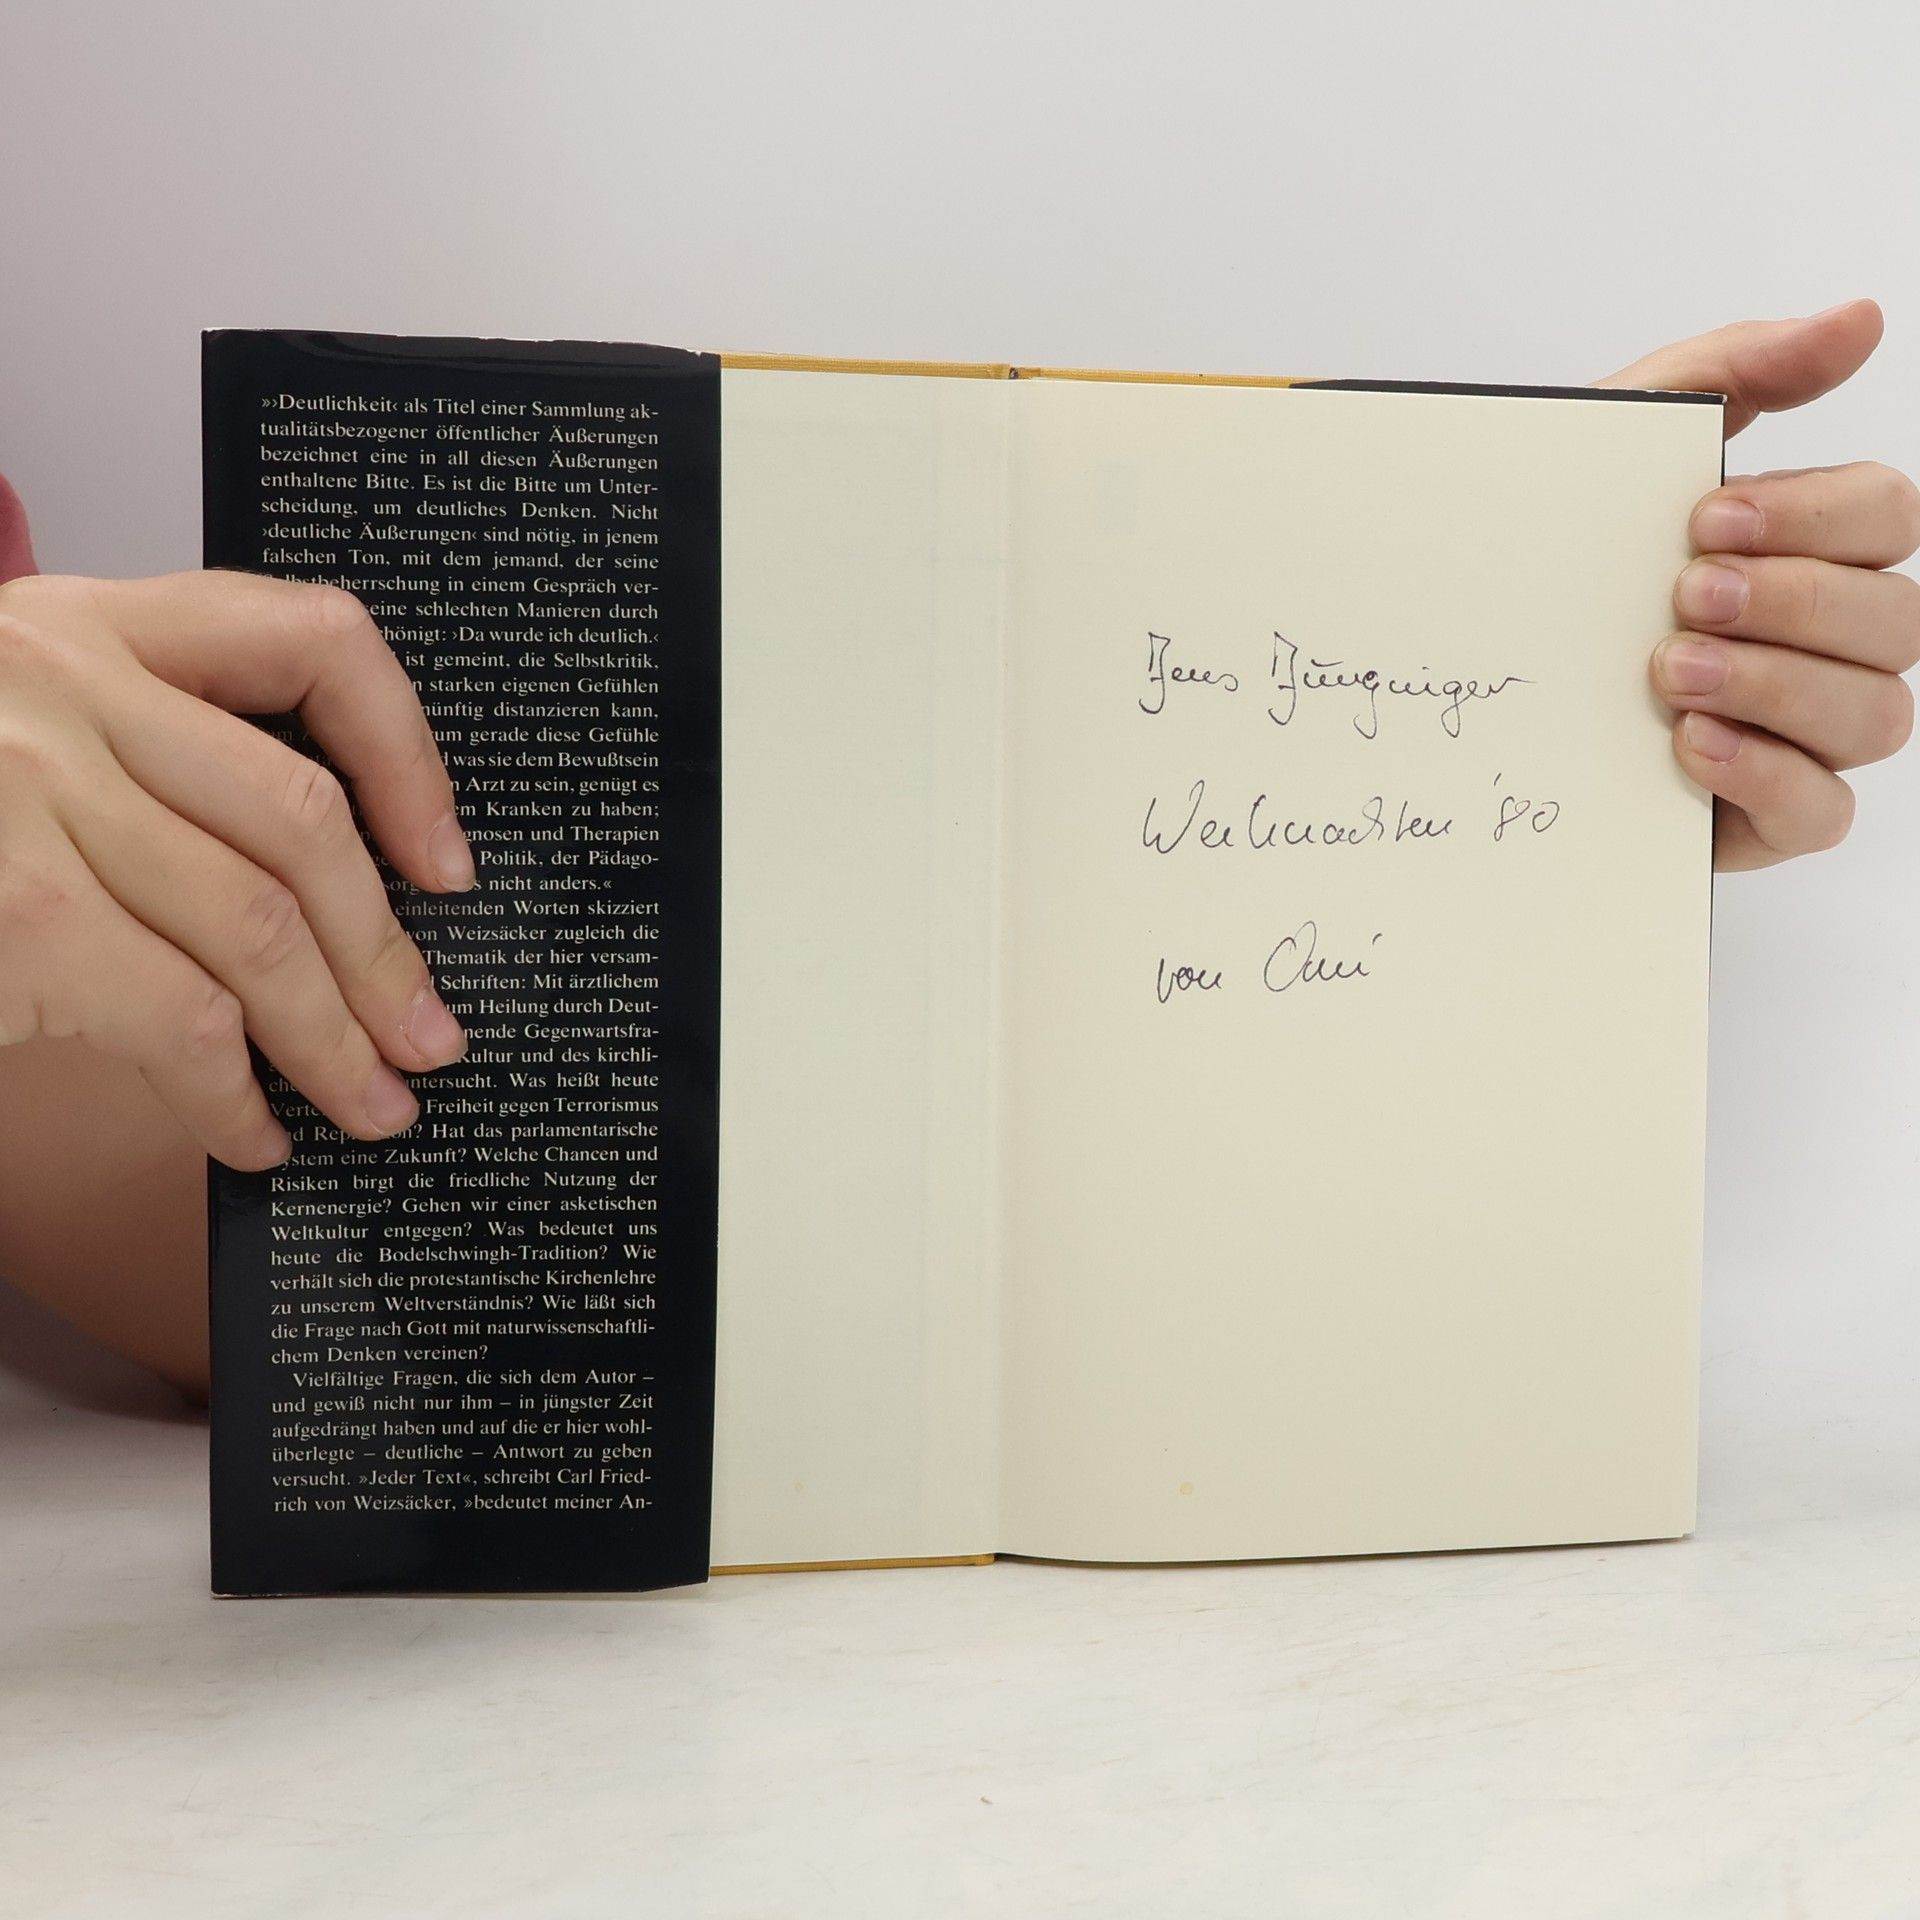 »›Deutlichkeit‹ als Titel einer Sammlung ak-
tualitätsbezogener öffentlicher Äußerungen
bezeichnet eine in all diesen Äußerungen
enthaltene Bitte. Es ist die Bitte um Unter-
scheidung, um deutliches Denken. Nicht
›deutliche Äußerungen‹ sind nötig, in jenem
falschen Ton, mit dem jemand, der seine
Selbstbeherrschung in einem Gespräch ver-
seine schlechten Manieren durch
schönigt: ›Da wurde ich deutlich.‹
ist gemeint, die Selbstkritik,
starken eigenen Gefühlen
nünftig distanzieren kann,
um gerade diese Gefühle
was sie dem Bewußtsein
Arzt zu sein, genügt es
em Kranken zu haben;
gnosen und Therapien
Politik, der Pädago-
nicht anders.«
einleitenden Worten skizziert
von Weizsäcker zugleich die
Thematik der hier versam-
Schriften: Mit ärztlichem
um Heilung durch Deut-
nende Gegenwartsfra-
Kultur und des kirchli-
untersucht. Was heißt heute
Freiheit gegen Terrorismus
? Hat das parlamentarische
ystem eine Zukunft? Welche Chancen und
Risiken birgt die friedliche Nutzung der
Kernenergie? Gehen wir einer asketischen
Weltkultur entgegen? Was bedeutet uns
heute die Bodelschwingh-Tradition? Wie
verhält sich die protestantische Kirchenlehre
zu unserem Weltverständnis? Wie läßt sich
die Frage nach Gott mit naturwissenschaftli-
chem Denken vereinen?
Vielfältige Fragen, die sich dem Autor –
und gewiß nicht nur ihm – in jüngster Zeit
aufgedrängt haben und auf die er hier wohl-
überlegte – deutliche – Antwort zu geben
versucht. »Jeder Text«, schreibt Carl Fried-
rich von Weizsäcker, »bedeutet meiner An-
Jens
Weihnachten '80
von Omi